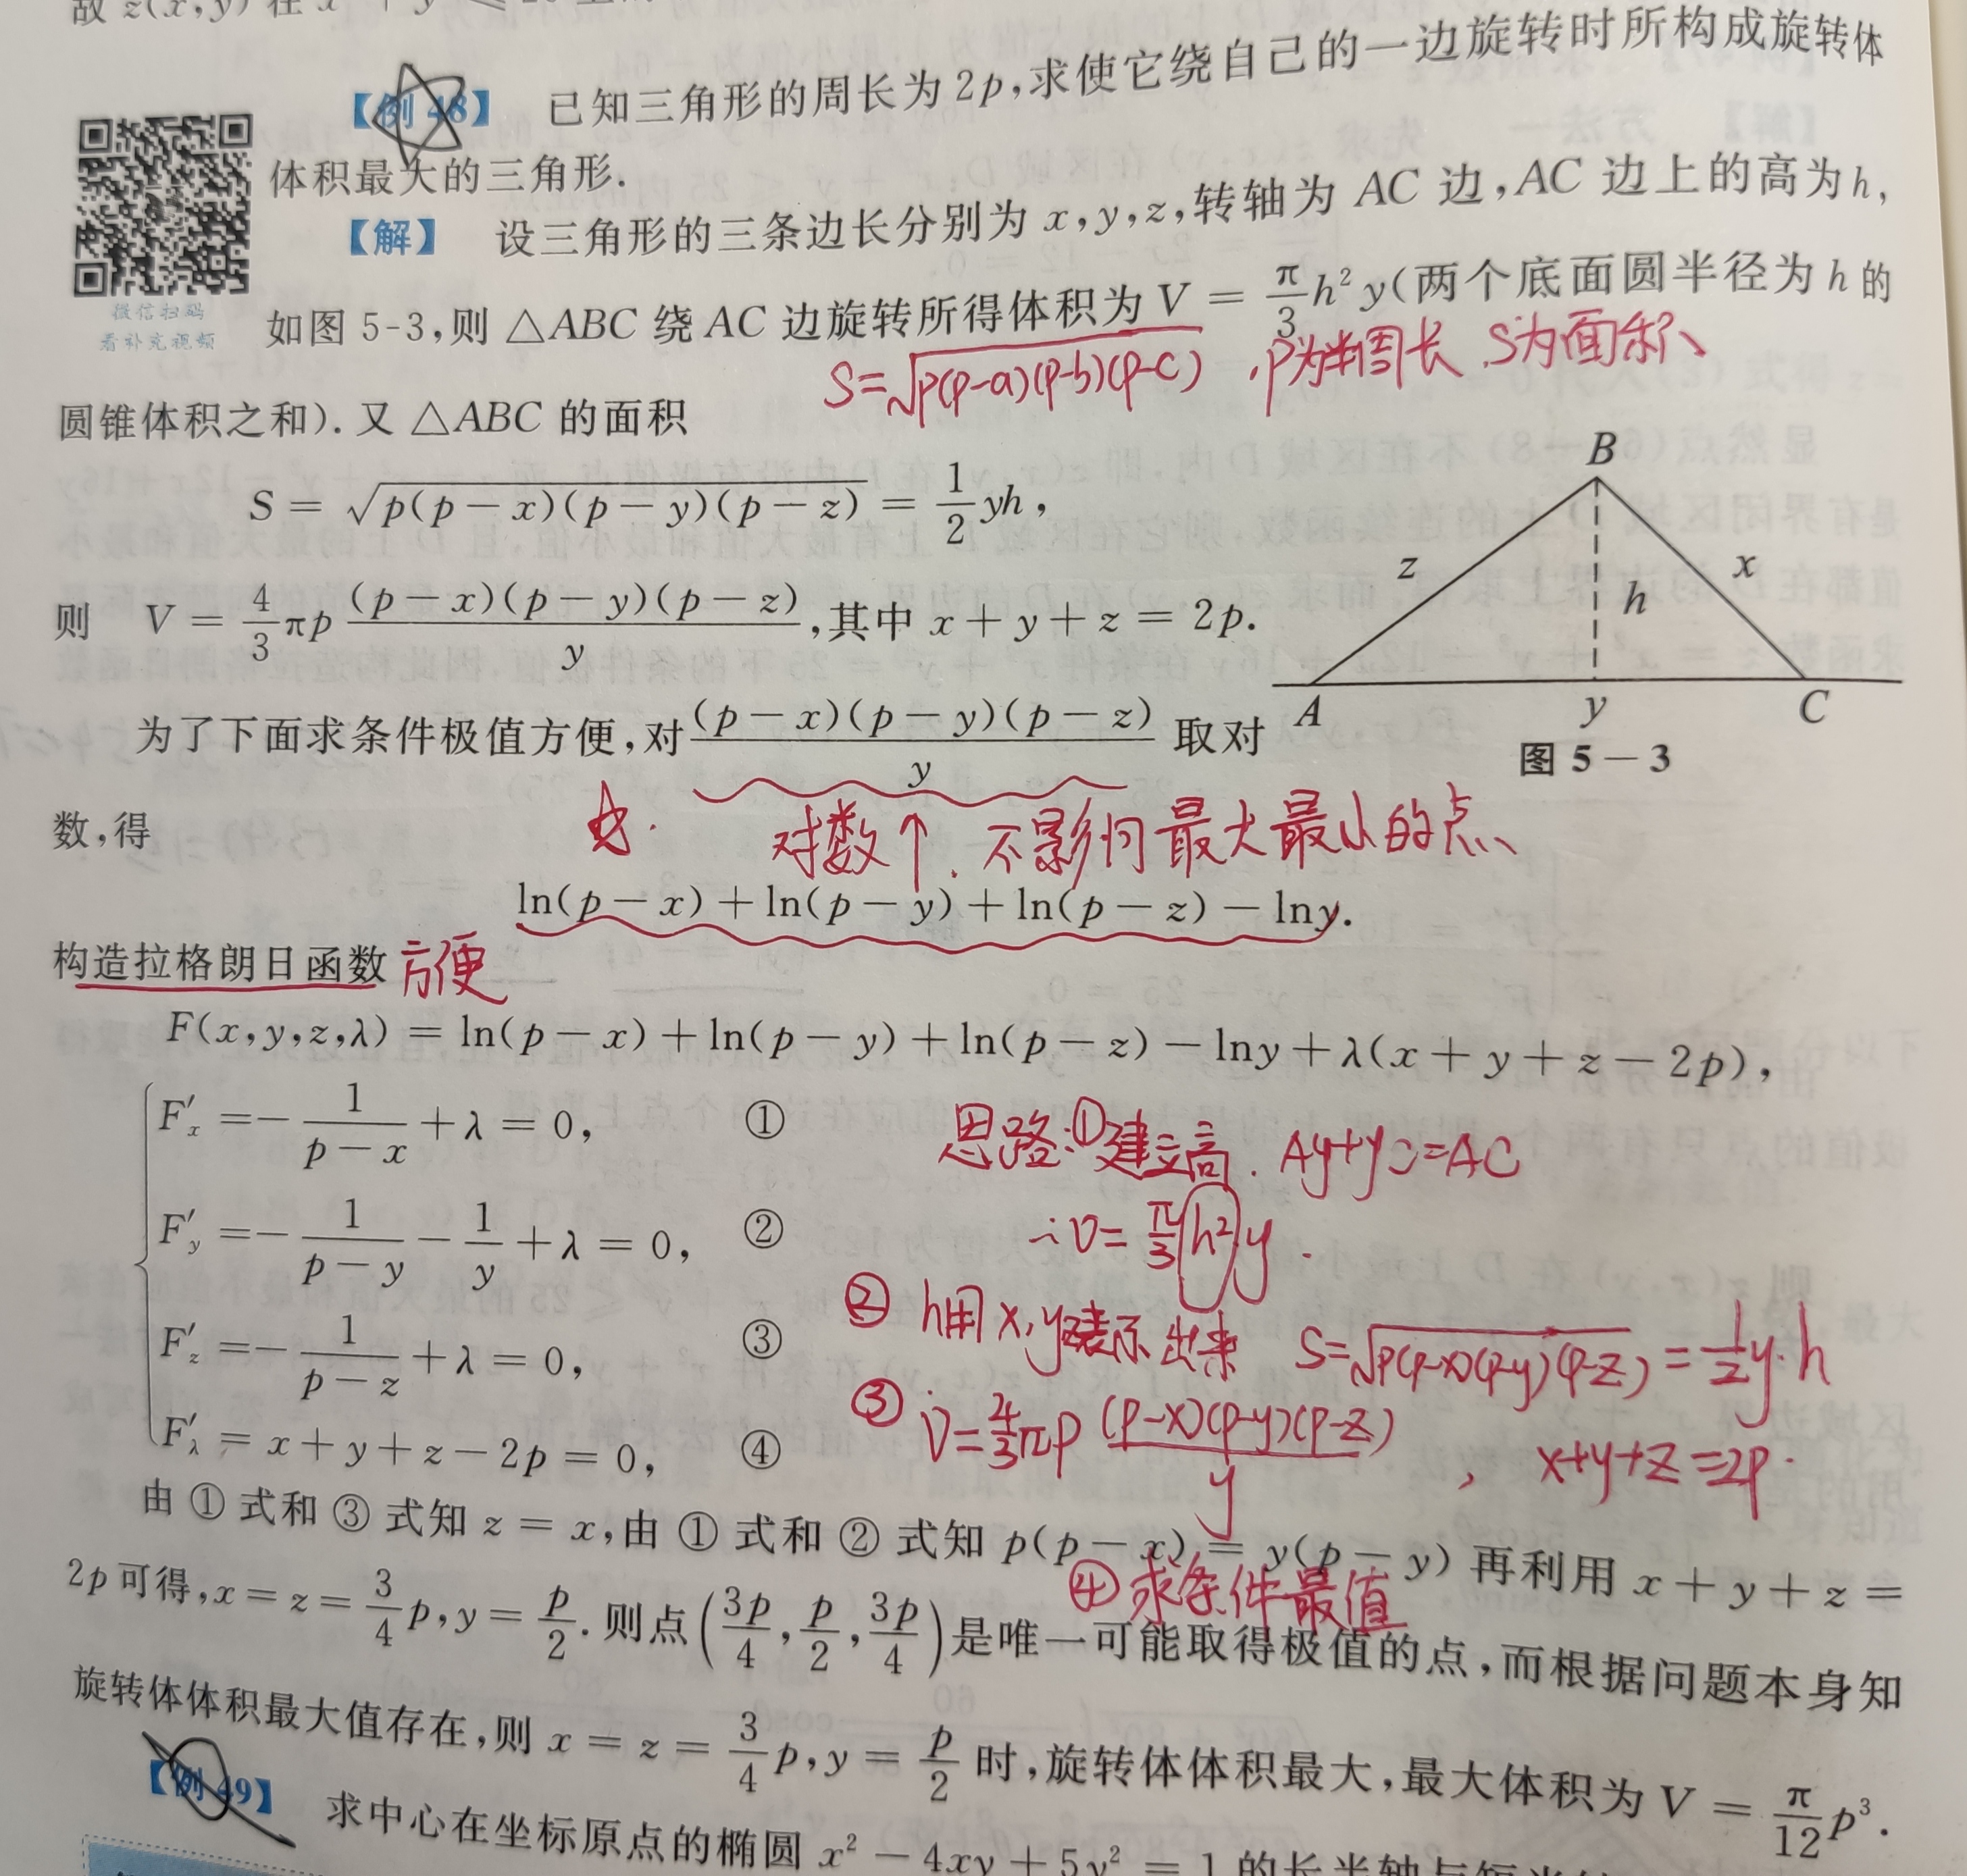 故 z(x,y) 在 x
【例 48】 已知三角形的周长为 2p,求使它绕自己的一边旋转时所构成旋转体
体积最大的三角形.
微信扫码
看补充视频
【解】 设三角形的三条边长分别为 x,y,z,转轴为 AC 边,AC 边上的高为 h,
如图 5-3,则 △ABC 绕 AC 边旋转所得体积为 V = π/3 h² y(两个底面圆半径为 h 的
S=√p(p-a)(p-b)(p-c) , p为半周长 . S为面积、
圆锥体积之和). 又 △ABC 的面积
S = √p(p-x)(p-y)(p-z) = 1/2 yh,
则 V = 4/3 πp (p-x)(p-y)(p-z)/y ,其中 x+y+z = 2p.
B
z
x
h
A
y
C
图 5-3
为了下面求条件极值方便,对 (p-x)(p-y)(p-z)/y 取对
数,得
对数↑. 不影响最大最小的点、
ln(p-x)+ln(p-y)+ln(p-z)-lny.
构造拉格朗日函数 方便
F(x,y,z,λ) = ln(p-x)+ln(p-y)+ln(p-z)-lny+λ(x+y+z-2p),
F′x = - 1/(p-x) + λ = 0, ①
F′y = - 1/(p-y) - 1/y + λ = 0, ②
F′z = - 1/(p-z) + λ = 0, ③
F′λ = x+y+z-2p = 0, ④
思路:①建立高. Ay+yC=AC
∴V= π/3 h² y .
② h用x,y,z表示出来 S=√p(p-x)(p-y)(p-z) = 1/2 y·h
③ V= 4/3 πp (p-x)(p-y)(p-z)/y , x+y+z=2p.
④求条件最值
由 ① 式和 ③ 式知 z = x,由 ① 式和 ② 式知 p(p-x) = y(p-y) 再利用 x+y+z =
2p 可得,x = z = 3/4 p,y = p/2. 则点(3p/4, p/2, 3p/4)是唯一可能取得极值的点,而根据问题本身知
旋转体体积最大值存在,则 x = z = 3/4 p,y = p/2 时,旋转体体积最大,最大体积为 V = π/12 p³.
【例 49】 求中心在坐标原点的椭圆 x² - 4xy + 5y² = 1 的长半轴与短半